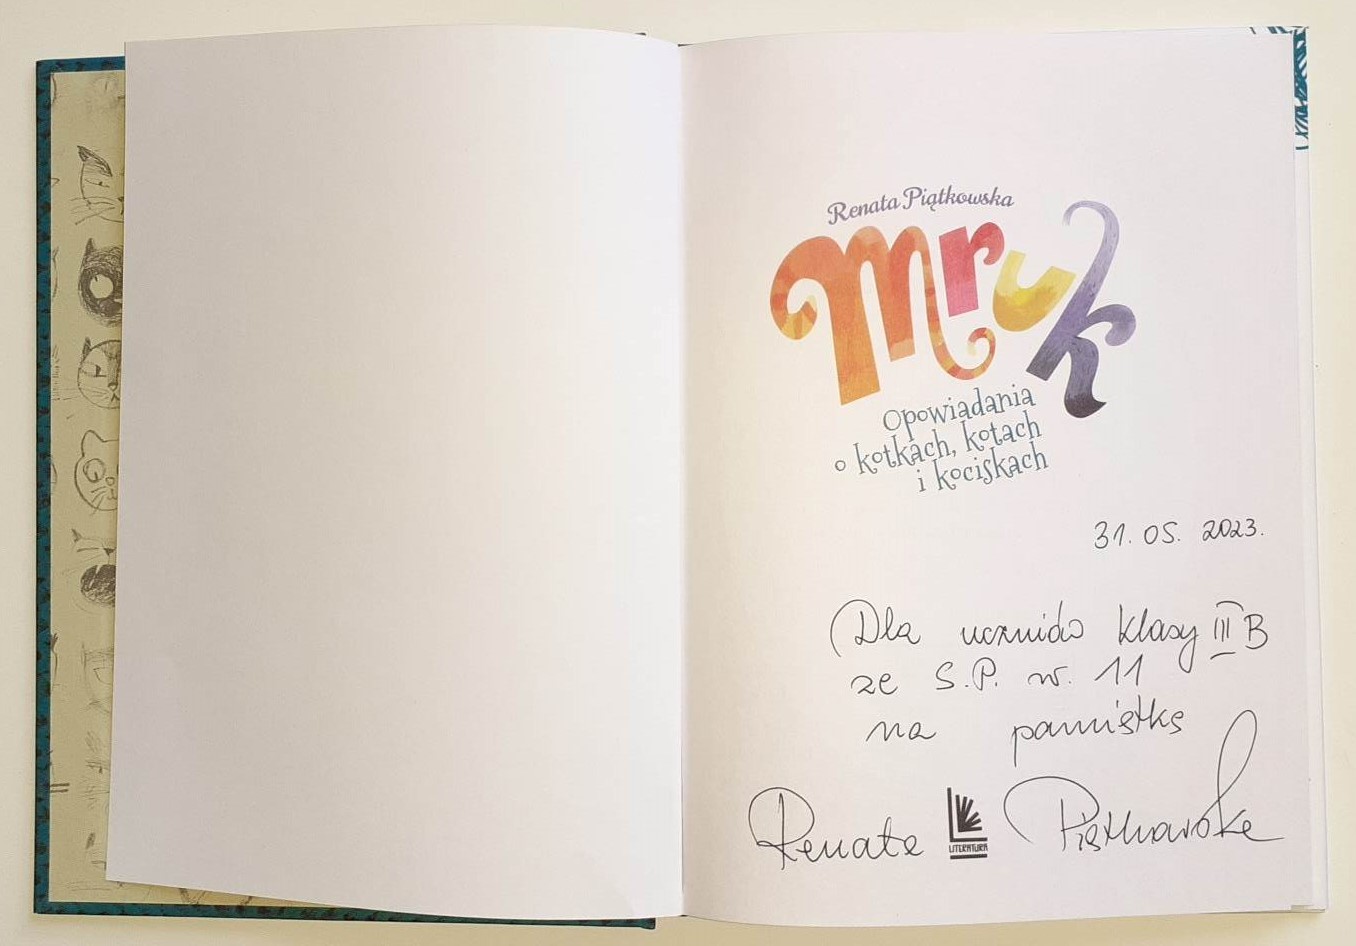 Renata Piątkowska
Mruk
Opowiadania
o kotkach, kotach
i kociskach
31. 05. 2023.
Dla uczniów klasy III B
ze S.P. nr. 11
na pamiątkę
Renata Piątkowska
LITERATURA